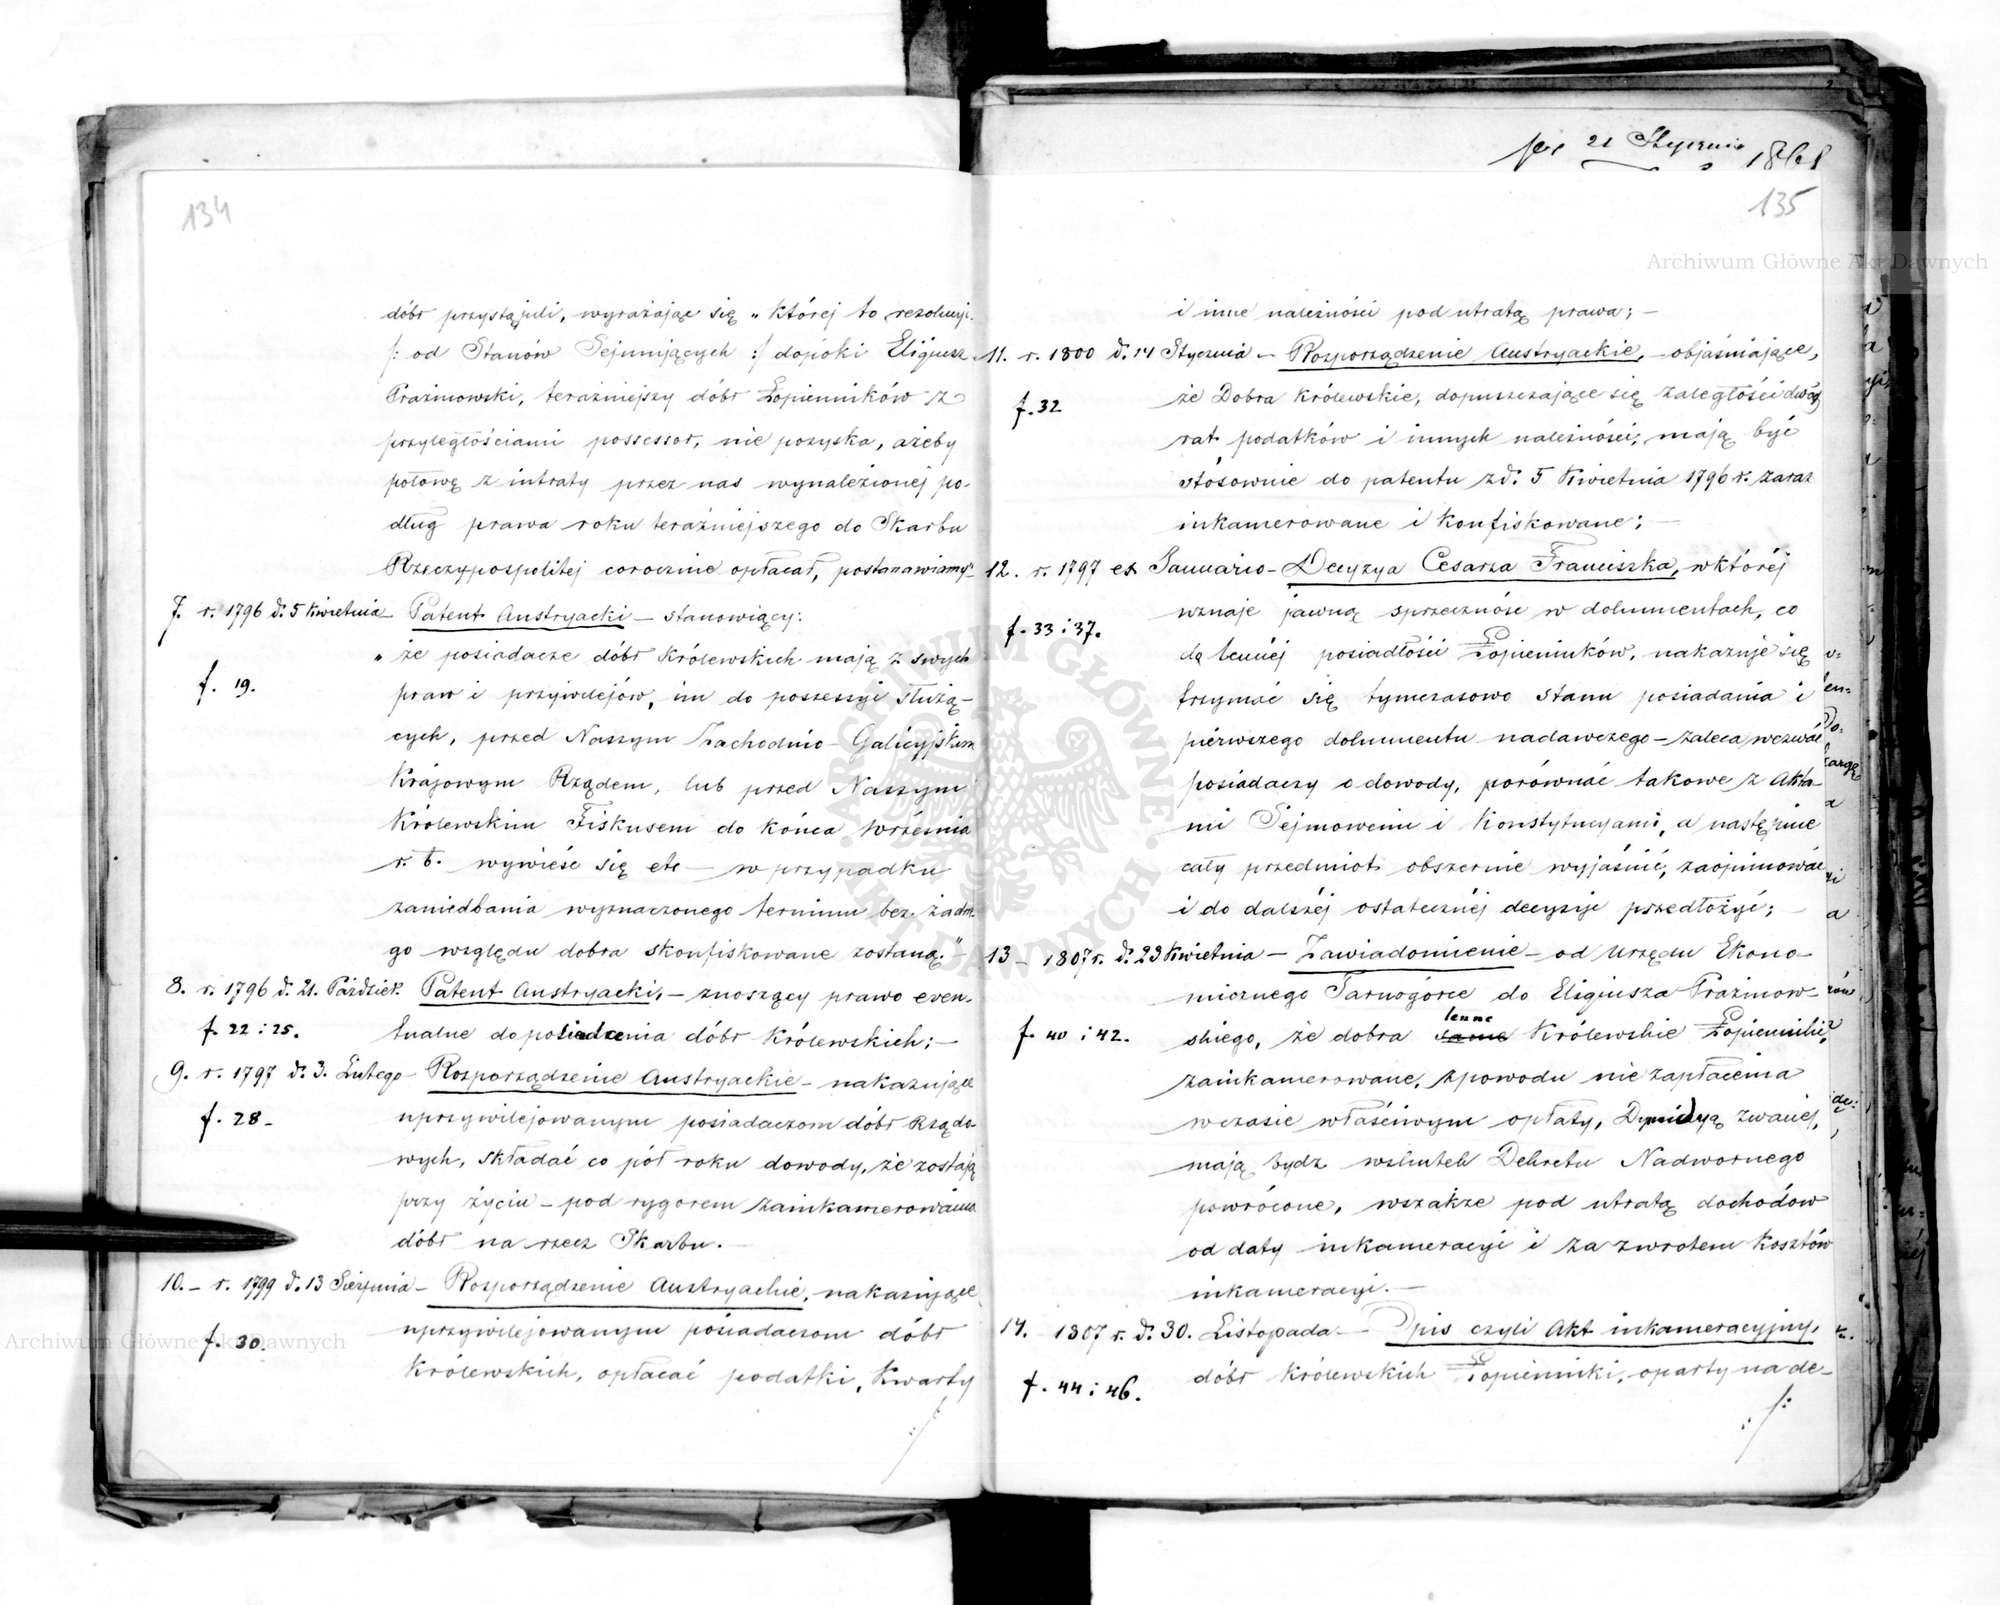 134
dóbr przystąpili, wyrażając się „której to rezolucyi
/: od Stanów Sejmujących :/ dopóki Eligiusz
Prażmowski, teraźniejszy dóbr Łopienników z
przyległościami possessor, nie pozyska, ażeby
połowę z intraty przez nas wynalezionej po-
dług prawa roku teraźniejszego do Skarbu
Rzeczypospolitej corocznie opłacał, postanawiamy"
7. r. 1796 d. 5 Kwietnia Patent Austryacki – stanowiący:
„że posiadacze dóbr Królewskich mają z swych
f. 19.
praw i przywilejów, im do possessyi służą-
cych, przed Naszym Zachodnio-Galicyjskim
Krajowym Rządem, lub przed Naszym
Królewskim Fiskusem do końca Września
r. b. wywieść się etc – w przypadku
zaniedbania wyznaczonego terminu bez żadne-
go względu dobra skonfiskowane zostaną." –
8. r. 1796 d. 21. Paździer. Patent Austryacki, – znoszący prawo even-
f. 22 i 25.
tualne do posiadzenia dóbr Królewskich; –
9. r. 1797 d. 3. Lutego – Rozporządzenie Austryackie – nakazujące
f. 28 –
uprzywilejowanym posiadaczom dóbr Rządo-
wych, składać co pół roku dowody, że zostają
przy życiu – pod rygorem zainkamerowania
dóbr na rzecz Skarbu. –
10. – r. 1799 d. 13 Sierpnia – Rozporządzenie Austryackie, nakazujące
f. 30.
uprzywilejowanym posiadaczom dóbr
Królewskich, opłacać podatki, Kwarty
21 Stycznia 1868
135
i inne należności pod utratą prawa; –
11. r. 1800 d. 14 Stycznia – Rozporządzenie Austryackie, – objaśniające,
f. 32
że Dobra Królewskie, dopuszczające się zaległości dwóch
rat podatków i innych należności, mają być
stósownie do patentu z d. 5 Kwietnia 1796 r. zaraz
inkamerowane i konfiskowane; –
12. r. 1797 ex Januario – Decyzya Cesarza Franciszka, w której
f. 33 i 37.
uznaje jawną sprzeczność w dokumentach, co
do lennéj posiadłości Łopienników, nakazuje się
trzymać się tymczasowo stanu posiadania i
pierwszego dokumentu nadawczego – zaleca wezwać
posiadaczy o dowody, porównać takowe z Akta-
mi Sejmowemi i Konstytucyami, a następnie
cały przedmiot obszernie wyjaśnić, zaopiniować
i do dalszéj ostatecznéj decyzyi przedłożyć; –
13 – 1807 r. d. 23 Kwietnia – Zawiadomienie – od Urzędu Ekono-
micznego Tarnogórce do Eligiusza Prażmow-
f. 40 i 42.
lenne
skiego, że dobra same Królewskie Łopienniki,
zainkamerowane, z powodu nie zapłacenia
wczasie właściwym opłaty, Dymidyą zwanej,
mają bydz wskutek Dekretu Nadwornego
powrócone, wszakże pod utratą dochodów
od daty inkameracyi i za zwrotem kosztów
inkameracyi. –
14. 1807 r. d. 30. Listopada – Opis czyli Akt inkameracyjny,
f. 44 i 46.
dóbr Królewskich Łopienniki, oparty na de-
Archiwum Główne Akt Dawnych
Archiwum Główne Akt Dawnych
ARCHIWUM GŁÓWNE AKT DAWNYCH